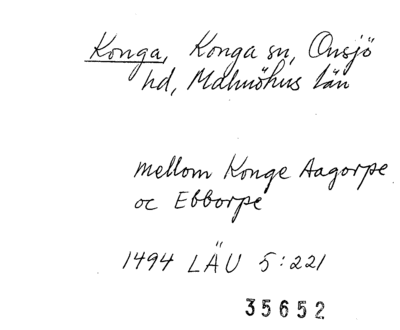 Konga, Konga sn, Onsjö
hd, Malmöhus län
mellom Konge Aagorpe
oc Ebborpe
1494 LÄU 5:221
35652